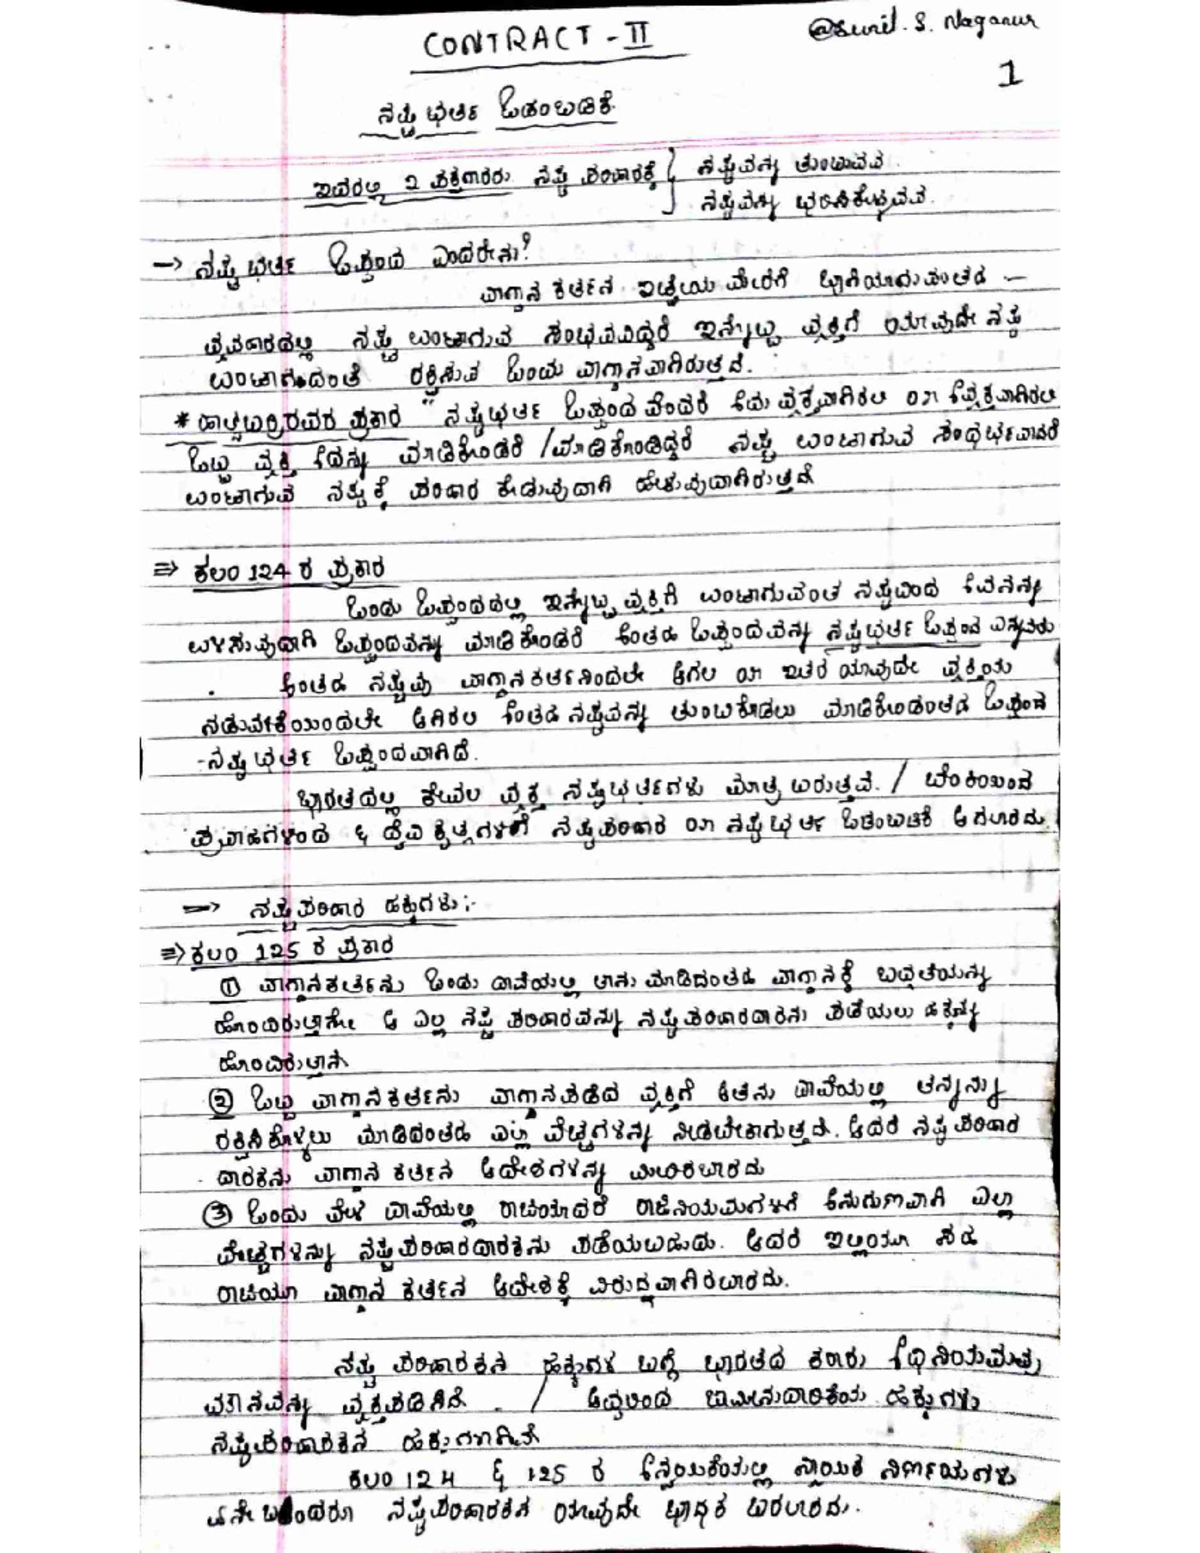 @Sunil. S. Naganur
CONTRACT - II
1
ನಷ್ಟಭರ್ತಿ ಒಡಂಬಡಿಕೆ
ಇದರಲ್ಲಿ 2 ಪಕ್ಷಕಾರರು ನಷ್ಟ ಪರಿಹಾರಕ್ಕೆ { ನಷ್ಟವನ್ನು ತುಂಬುವವ
ನಷ್ಟವನ್ನು ಭರಿಸಿಕೊಳ್ಳುವವ.
→ ನಷ್ಟಭರ್ತಿ ಒಪ್ಪಂದ ಎಂದರೇನು?
ವಾಗ್ದಾನ ಕರ್ತನ ಇಚ್ಛೆಯ ಮೇರೆಗೆ ಭಾಗಿಯಾಗುವಂತಹ –
ವ್ಯವಹಾರದಲ್ಲಿ ನಷ್ಟ ಉಂಟಾಗುವ ಸಂಭವವಿದ್ದರೆ ಇನ್ನೊಬ್ಬ ವ್ಯಕ್ತಿಗೆ ಯಾವುದೇ ನಷ್ಟ
ಉಂಟಾಗದಂತೆ ರಕ್ಷಿಸುವ ಒಂದು ವಾಗ್ದಾನವಾಗಿರುತ್ತದೆ.
* ಪ್ರಕಾರ " ನಷ್ಟಭರ್ತಿ ಒಪ್ಪಂದವೆಂದರೆ ಅದು ವ್ಯಕ್ತವಾಗಿರಲಿ ಅವ್ಯಕ್ತವಾಗಿರಲಿ
ಒಬ್ಬ ವ್ಯಕ್ತಿ ಇದನ್ನು ಮಾಡಿಕೊಂಡರೆ / ಮಾಡಿಕೊಂಡಿದ್ದರೆ ನಷ್ಟ ಉಂಟಾಗುವ ಸಂದರ್ಭವಾದರೆ
ಉಂಟಾಗುವ ನಷ್ಟಕ್ಕೆ ಪರಿಹಾರ ಕೊಡುವುದಾಗಿ ಹೇಳುವುದಾಗಿರುತ್ತದೆ
⇒ ಕಲಂ 124 ರ ಪ್ರಕಾರ
ಒಂದು ಒಪ್ಪಂದದಲ್ಲಿ ಇನ್ನೊಬ್ಬ ವ್ಯಕ್ತಿಗೆ ಉಂಟಾಗುವಂತ ನಷ್ಟದಿಂದ ಅವನನ್ನು
ಉಳಿಸುವುದಾಗಿ ಒಪ್ಪಂದವನ್ನು ಮಾಡಿಕೊಂಡರೆ ಅಂತಹ ಒಪ್ಪಂದವನ್ನು ನಷ್ಟಭರ್ತಿ ಒಪ್ಪಂದ ಎನ್ನುವರು
ಅಂತಹ ನಷ್ಟವು ವಾಗ್ದಾನಕರ್ತನಿಂದಲೇ ಆಗಲಿ ಇತರ ಯಾವುದೇ ವ್ಯಕ್ತಿಯ
ನಡುವಳಿಕೆಯಿಂದಲೇ ಆಗಿರಲಿ ಅಂತಹ ನಷ್ಟವನ್ನು ತುಂಬಿಕೊಡಲು ಮಾಡಿಕೊಂಡಂತಹ ಒಪ್ಪಂದ
- ನಷ್ಟಭರ್ತಿ ಒಪ್ಪಂದವಾಗಿದೆ.
ಭಾರತದಲ್ಲಿ ಕೇವಲ ವ್ಯಕ್ತಿ ನಷ್ಟಭರ್ತಿಗಳು ಮಾತ್ರ ಬರುತ್ತವೆ. / ಬೆಂಕಿಯಿಂದ
ಪ್ರವಾಹಗಳಿಂದ & ದೈವಿ ಕೃತ್ಯಗಳಿಗೆ ನಷ್ಟಪರಿಹಾರ ನಷ್ಟಭರ್ತಿ ಒಡಂಬಡಿಕೆ ಆಗಲಾರದು.
→ ನಷ್ಟಪರಿಹಾರ ಹಕ್ಕುಗಳು :-
⇒ ಕಲಂ 125 ರ ಪ್ರಕಾರ
① ವಾಗ್ದಾನಕರ್ತನು ಒಂದು ದಾವೆಯಲ್ಲಿ ತಾನು ಮಾಡಿದಂತಹ ವಾಗ್ದಾನಕ್ಕೆ ಬದ್ಧತೆಯನ್ನು
ಹೊಂದಿರುತ್ತಾನೋ ಆ ಎಲ್ಲ ನಷ್ಟ ಪರಿಹಾರವನ್ನು ನಷ್ಟಪರಿಹಾರದಾರನು ಪಡೆಯಲು ಹಕ್ಕನ್ನು
ಹೊಂದಿರುತ್ತಾನೆ
② ಒಬ್ಬ ವಾಗ್ದಾನಕರ್ತನು ವಾಗ್ದಾನಪಡೆದ ವ್ಯಕ್ತಿಗೆ ಆತನು ದಾವೆಯಲ್ಲಿ ತನ್ನನ್ನು
ರಕ್ಷಿಸಿಕೊಳ್ಳಲು ಮಾಡಿದಂತಹ ಎಲ್ಲಾ ವೆಚ್ಚಗಳನ್ನು ನೀಡಬೇಕಾಗುತ್ತದೆ. ಆದರೆ ನಷ್ಟ ಪರಿಹಾರ
ದಾರಕನು ವಾಗ್ದಾನ ಕರ್ತನ ಆದೇಶಗಳನ್ನು ಮೀರಬಾರದು
③ ಒಂದು ವೇಳೆ ದಾವೆಯಲ್ಲಿ ರಾಜಿಯಾದರೆ ರಾಜಿನಿಯಮಗಳಿಗೆ ಅನುಗುಣವಾಗಿ ಎಲ್ಲಾ
ವೆಚ್ಚಗಳನ್ನು ನಷ್ಟಪರಿಹಾರದಾರಕನು ಪಡೆಯಬಹುದು. ಆದರೆ ಇಲ್ಲಿಯೂ ಸಹ
ರಾಜಿಯೂ ವಾಗ್ದಾನ ಕರ್ತನ ಆದೇಶಕ್ಕೆ ವಿರುದ್ಧವಾಗಿರಬಾರದು.
ನಷ್ಟ ಪರಿಹಾರಕನ ಹಕ್ಕುಗಳ ಬಗ್ಗೆ ಭಾರತದ ಕರಾರು ಅಧಿನಿಯಮವು
ಮೌನವನ್ನು ವ್ಯಕ್ತಪಡಿಸಿದೆ. / ಆದ್ದರಿಂದ ಜಾಮೀನುದಾರಿಕೆಯ ಹಕ್ಕುಗಳು
ನಷ್ಟಪರಿಹಾರಕನ ಹಕ್ಕುಗಳಾಗಿವೆ
ಕಲಂ 124 & 125 ರ ಅನ್ವಯಿಕೆಯಲ್ಲಿ ನ್ಯಾಯಿಕ ನಿರ್ಣಯಗಳು
ಏನೇ ಬಂದರೂ ನಷ್ಟಪರಿಹಾರಕನಿಗೆ ಯಾವುದೇ ಬಾಧಕ ಬರಲಾರದು.